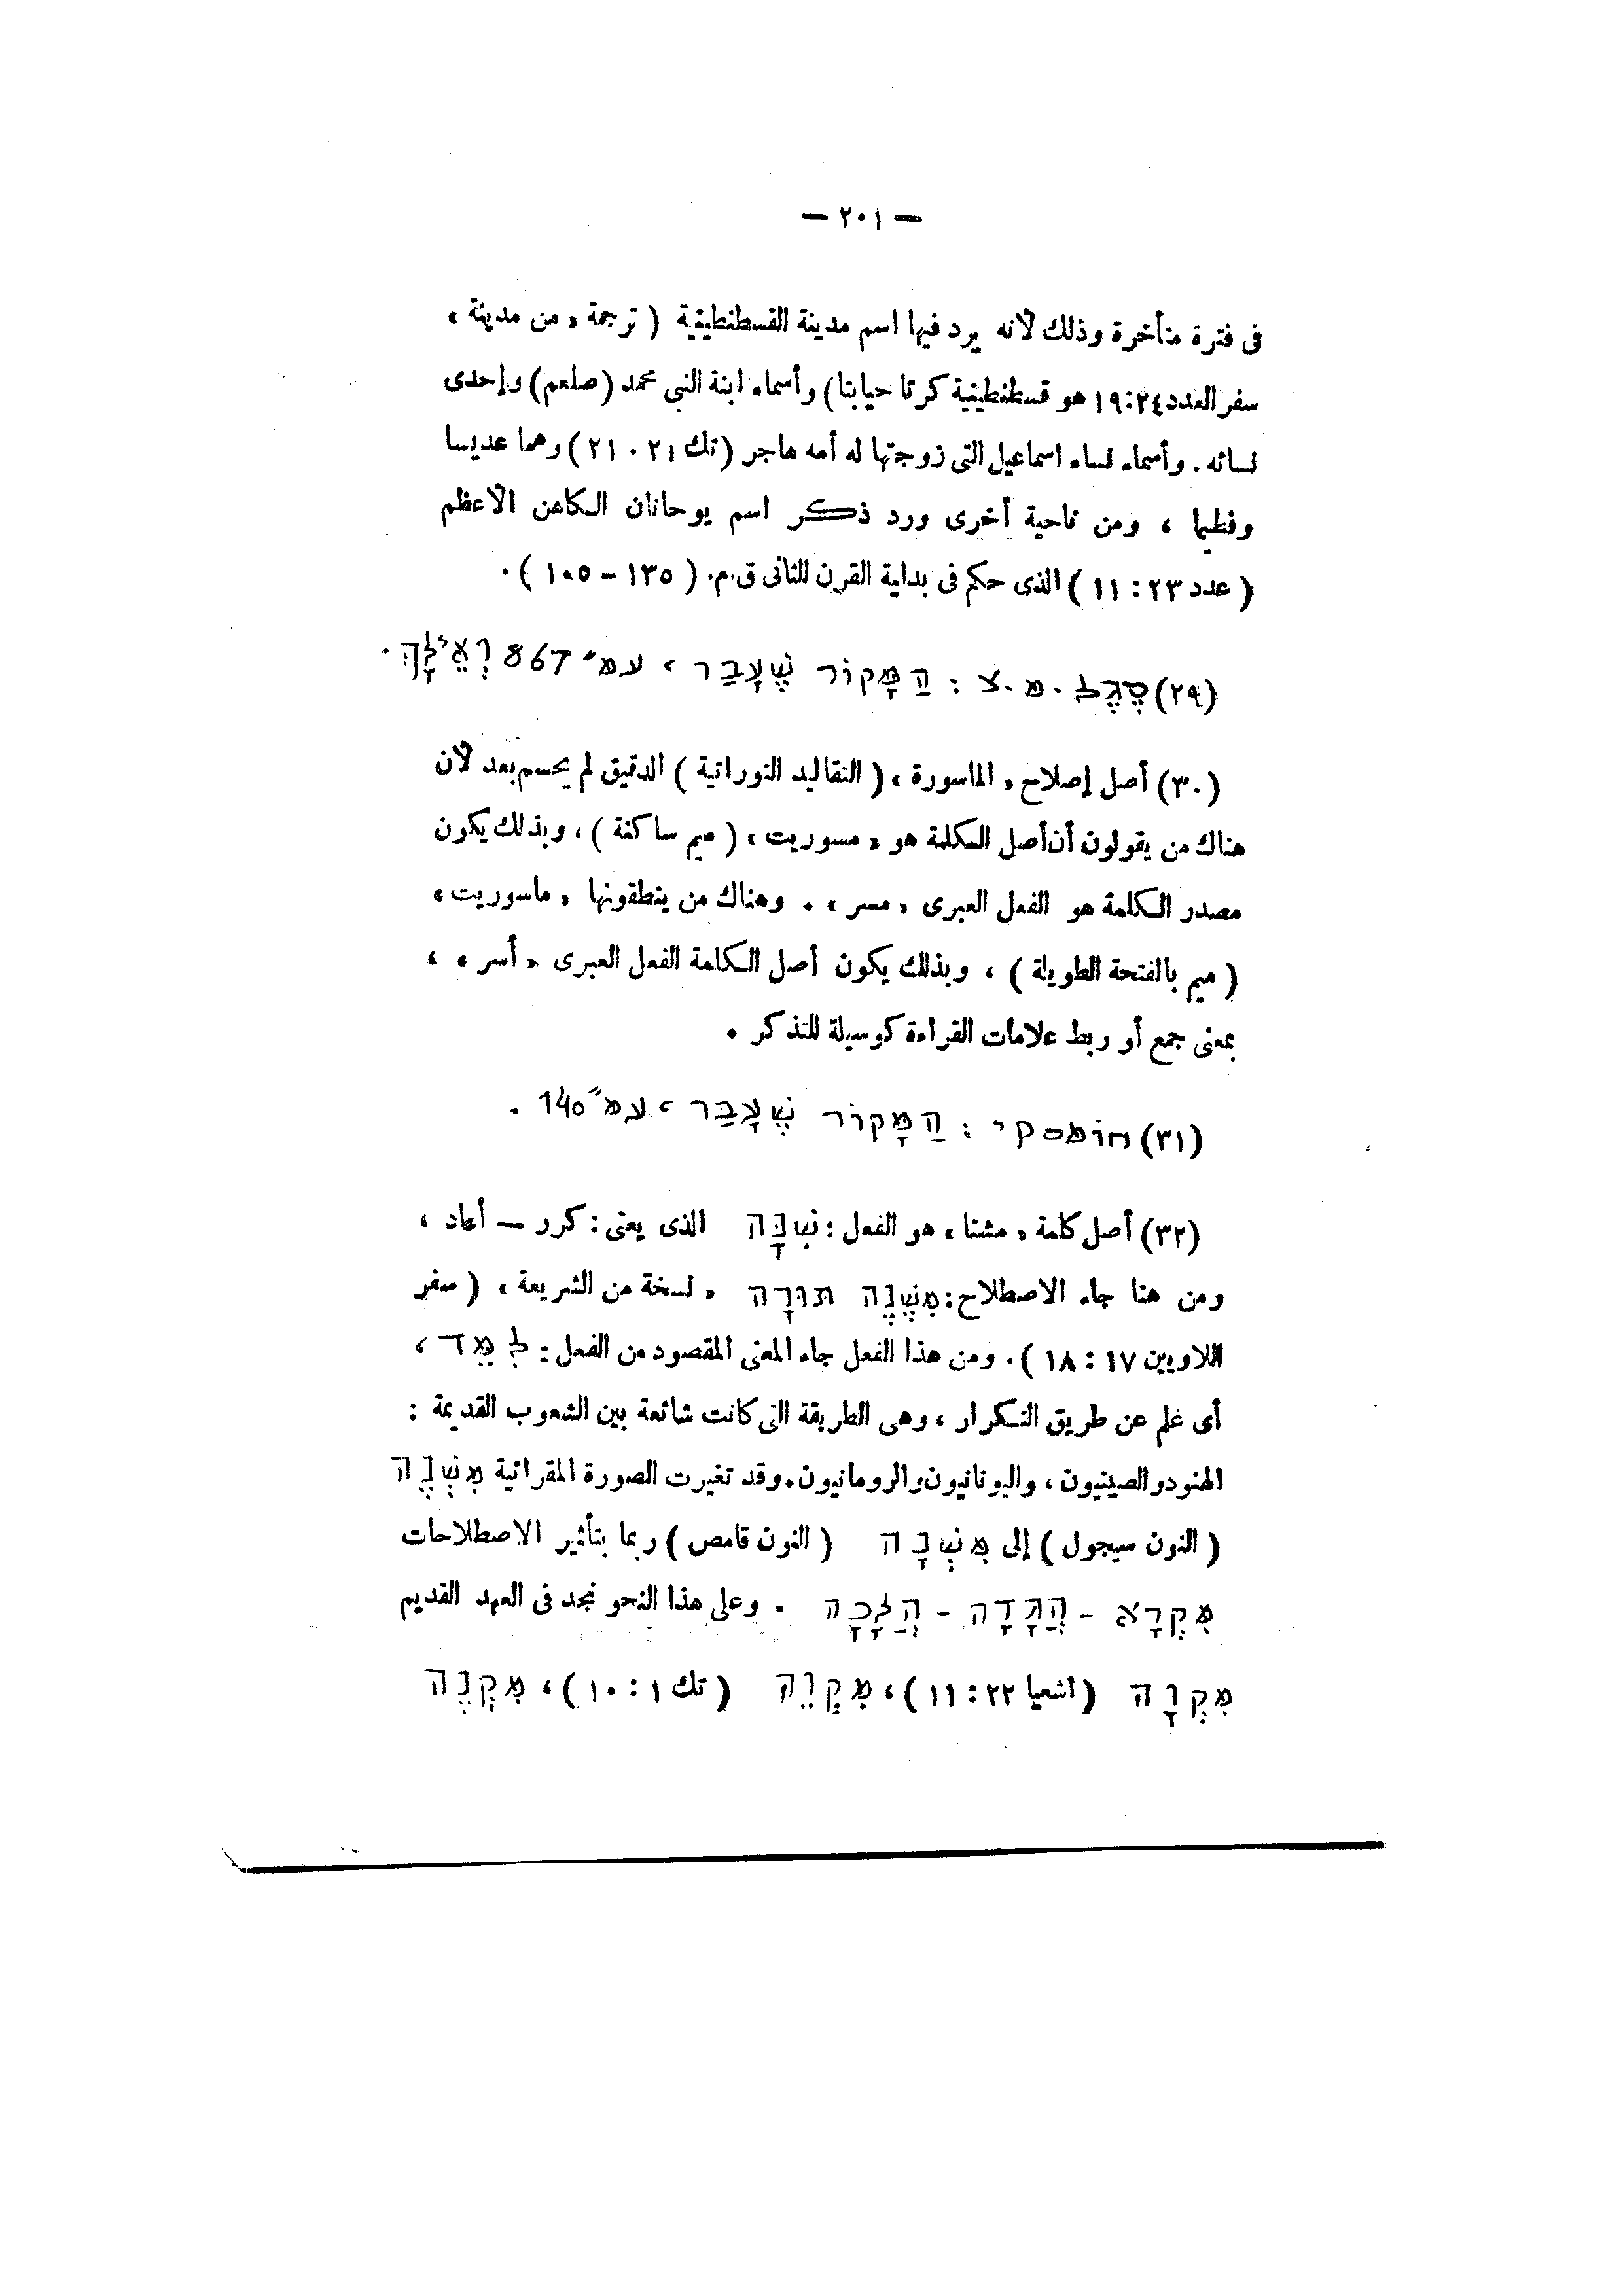 — ٢٠١ —
فى فترة متأخرة وذلك لأنه يرد فيها اسم مدينة القسطنطينية ( ترجمة « من مدينة »
سفر العدد ٢٤:١٩ هو قسطنطينية كرتا حيابتا) وأسماء ابنة النبى محمد (صلعم) وإحدى
نسائه. وأسماء نساء اسماعيل التى زوجتها له أمه هاجر (تك ٢١ . ٢١) وهما عديسا
وفطيما ، ومن ناحية أخرى ورد ذكر اسم يوحانان الكاهن الاعظم
( عدد ٢٣ : ١١ ) الذى حكم فى بداية القرن الثانى ق.م. ( ١٣٥ – ١٠٥ ) .
(٢٩) סֶגֶל . מ . צ : הַמָּקוֹר שֶׁעָבַר ، עמ' 867 וָאֵילָךְ .
(٣٠) أصل إصلاح « الماسورة » ( التقاليد التوراتية ) الدقيق لم يحسم بعد لأن
هناك من يقولون أن أصل الكلمة هو « مسوريت » ( ميم ساكنة ) ، وبذلك يكون
مصدر الكلمة هو الفعل العبرى « مسر » . وهناك من ينطقونها « ماسوريت »
( ميم بالفتحة الطويلة ) ، وبذلك يكون أصل الكلمة الفعل العبرى « أسر » ،
بمعنى جمع أو ربط علامات القراءة كوسيلة للتذكر .
(٣١) חוֹמסקי : הַמָּקוֹר שֶׁעָבַר ، עמ" 140 .
(٣٢) أصل كلمة « مشنا » هو الفعل : שָׁנָה الذى يعنى : كرر — أعاد ،
ومن هنا جاء الاصطلاح : מִשְׁנֶה תּוֹרָה « نسخة من الشريعة » ( سفر
اللاويين ١٧ : ١٨ ) . ومن هذا الفعل جاء المعنى المقصود من الفعل : לִמֵּד ،
أى غلم عن طريق التكرار ، وهى الطريقة التى كانت شائعة بين الشعوب القديمة :
الهنود والصينيون ، واليونانيون والرومانيون . وقد تغيرت الصورة المقرائية מִשְׁנֶה
( النون سيجول ) إلى מִשְׁנָה ( النون قامص ) ربما بتأثير الاصطلاحات
מִקְרָא – הֲגָדָה – הֲלָכָה . وعلى هذا النحو نجد فى العهد القديم
מִקְוָה ( اشعيا ٢٢ : ١١ ) ، מִקְוֵה ( تك ١ : ١٠ ) ، מִקְנֶה